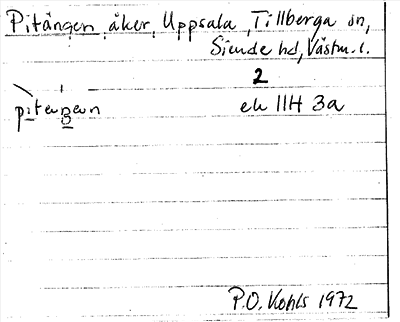 Pitängen, åker, Uppsala, Tillberga sn,
Siende hd, Västm. l.
2
ek 11H 3a
P.O. Kohls 1972